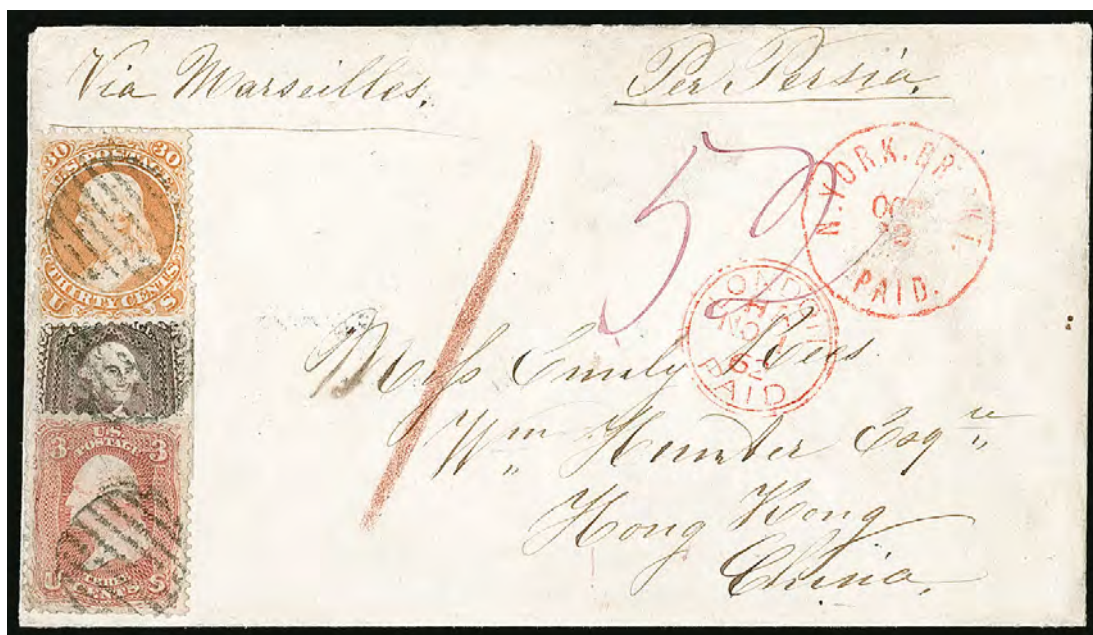 Via Marseilles.
Per Persia.
30 30
U.S. POSTAGE
THIRTY CENTS
U S
U.S.
POSTAGE
3 3
THREE
CENTS
U S
53
N. YORK. BR. PKT.
OCT
PAID.
LONDON
NO 1
62
PAID
Miss Emily
Wm Hunter Esqre
Hong Kong
China